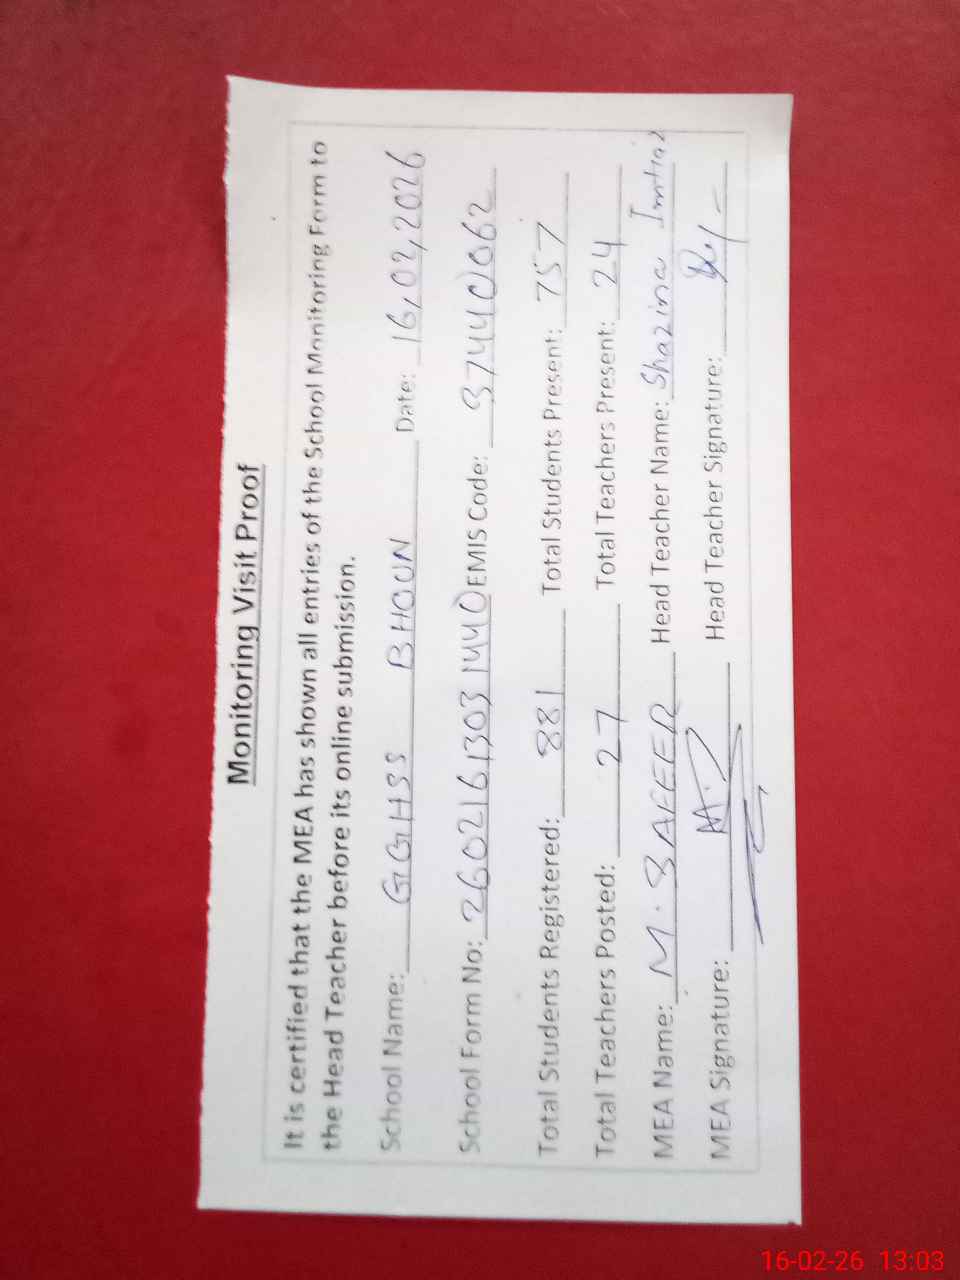 Monitoring Visit Proof
It is certified that the MEA has shown all entries of the School Monitoring Form to
the Head Teacher before its online submission.
School Name: GGHSS BHOUN Date: 16,02,2026
School Form No: 26021613031440 EMIS Code: 37440062
Total Students Registered: 881 Total Students Present: 757
Total Teachers Posted: 27 Total Teachers Present: 24
MEA Name: M. SAFEER Head Teacher Name: Shazina Imtiaz
MEA Signature: Head Teacher Signature:
16-02-26 13:03